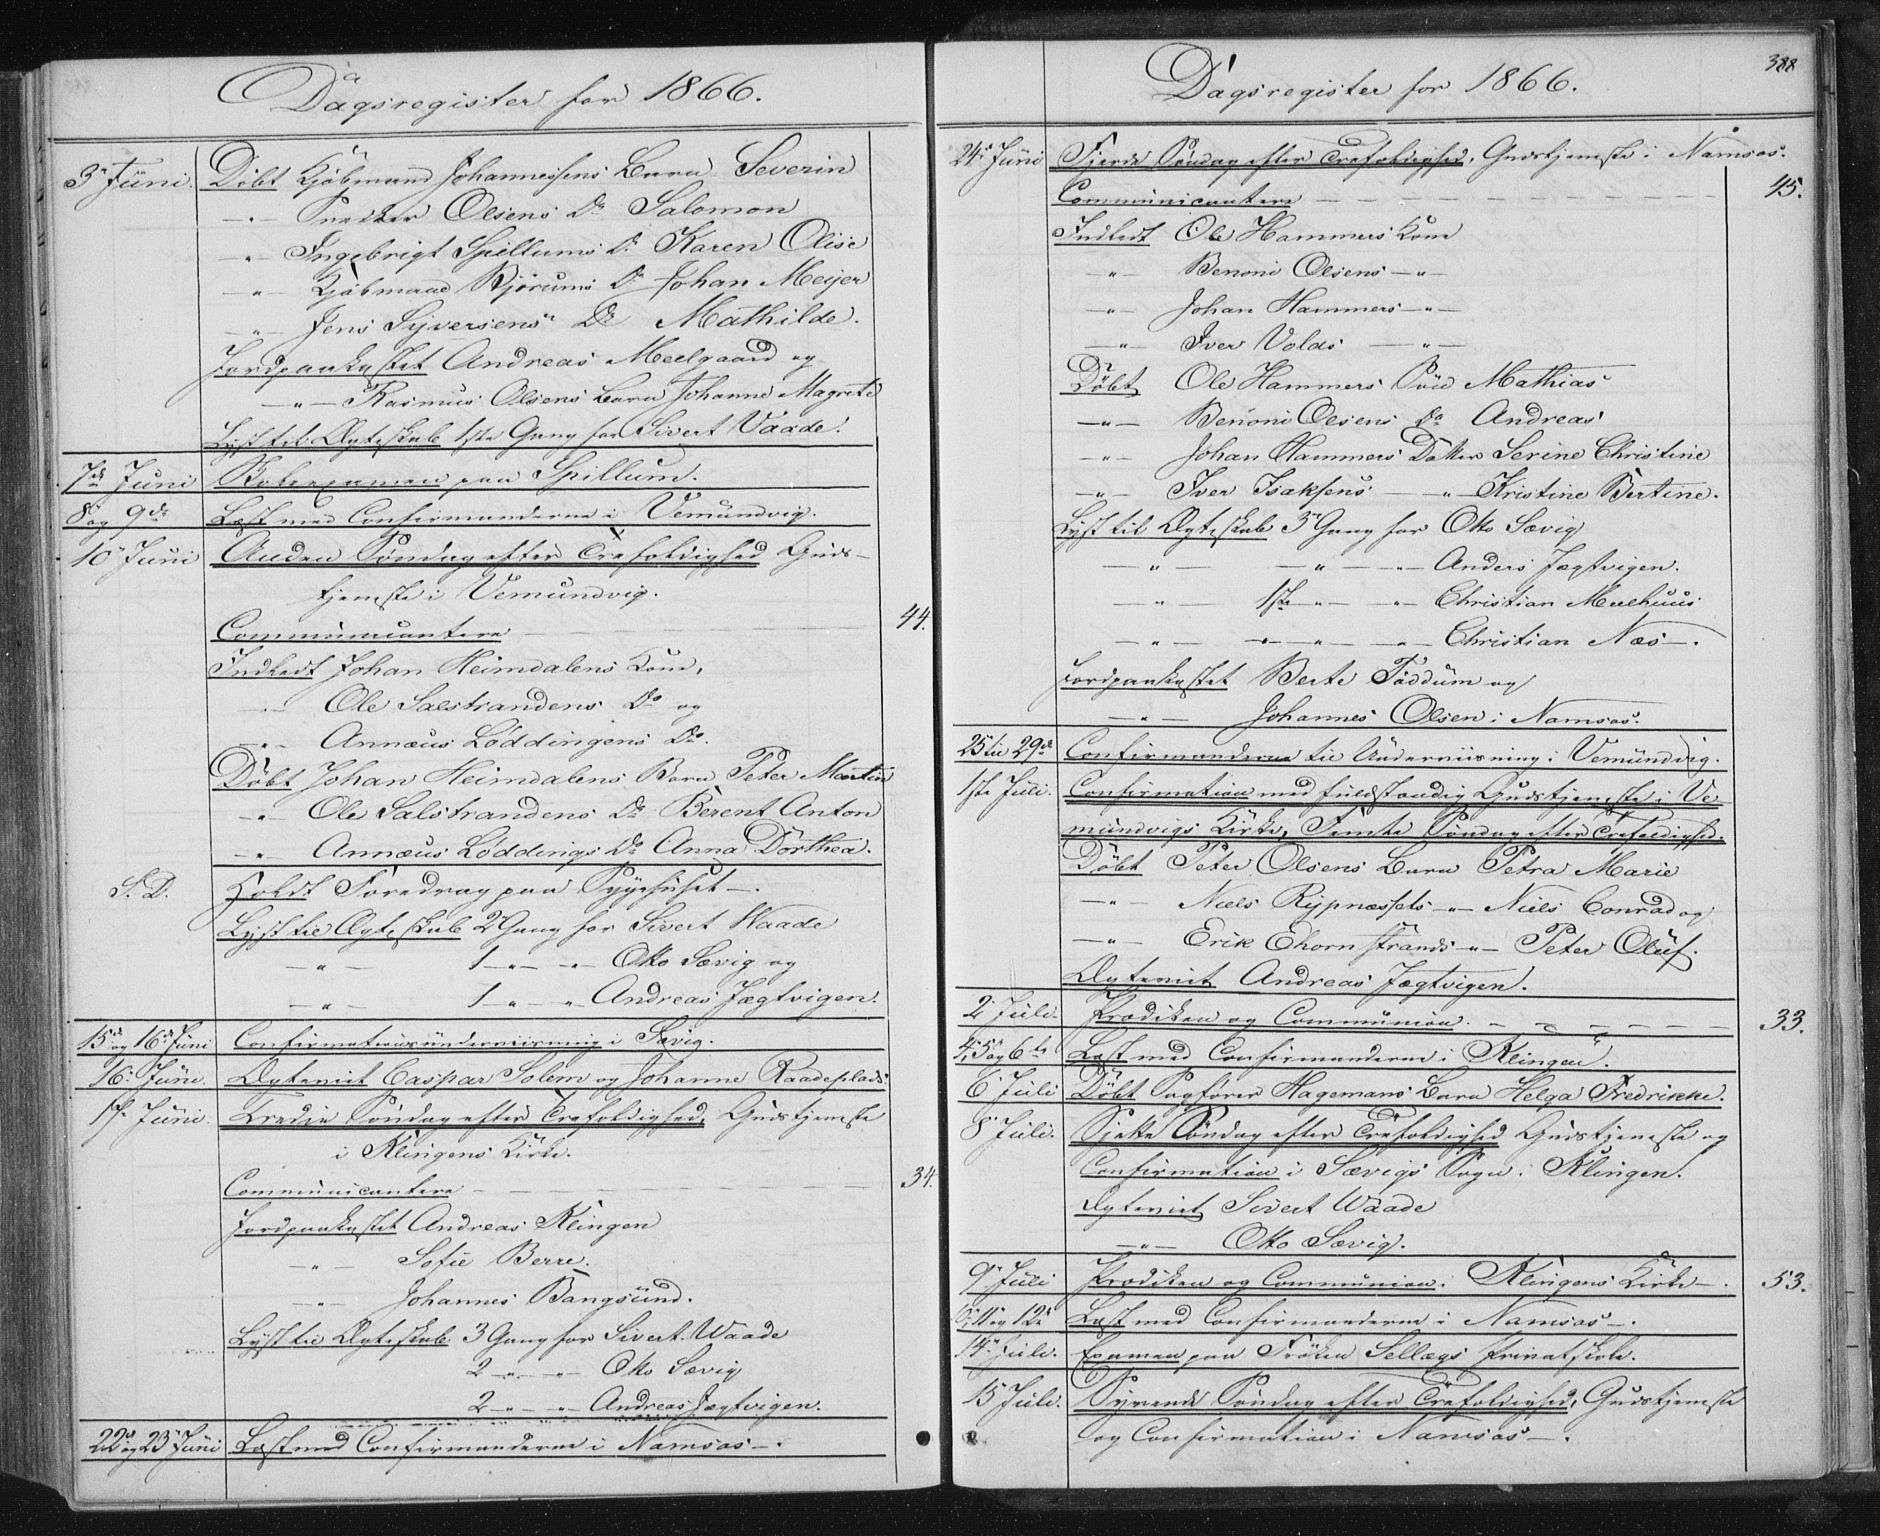 Dagsregister for 1866.
3die Juni. Døbt Kjøbmand Johannesens Barn Severin
-"- Snedker Olsens Do Salomon
" Ingebrigt Spillums Do Karen Olise
-"- Kjøbmand Bjørums Do Johan Meijer
-"- Jens Syversens Do Mathilde.
Jordpaakastet Andreas Meelgaard og
-"- Rasmus Olsens Barn Johanne Magrete
Lyst til Ægteskab 1ste Gang for Sivert Vaade.
7de Juni Skoleexamen paa Spillum.
8 og 9de Læst med Confirmanderne i Vemundvig.
10 Juni Anden Søndag efter Trefoldighed Guds-
tjeneste i Vemundvig.
Communicantere 44.
Indledt Johan Heimdalens Kone,
-"- Ole Salstrandens Do og
-"- Annæus Løddingens Do.
Døbt Johan Heimdalens Barn Peter Martin
" Ole Salstrandens Do Berent Anton
-"- Annæus Løddings Do Anna Dorthea.
S. D. Holdt Foredrag paa Sygehuset -.
Lyst til Ægteskab 2 Gang for Sivert Waade
-"- 1 -"- -"- Otto Sævig og
-"- 1 " - " Andreas Jægtvigen.
15 og 16de Juni Confirmationsunderviisning i Sævig.
16 Juni. Ægteviet Caspar Solem og Johanne Raadeplads.
17 Juni. Tredje Søndag efter Trefoldighed, Gudstjeneste
i Klingens Kirke.
Communicantere 34.
Jordpaakastet Andreas Klingen
-"- Sofie Berre.
-"- Johannes Bangsund.
Lyst til Ægteskab 3 Gang for Sivert Waade
2 -"- -"- Otto Sævig
2 -"- -"- Andreas Jægtvigen.
22 og 23 Juni Læst med Confirmanderne i Namsos -.
388
Dagsregister for 1866.
24 Juni Fjerde Søndag efter Trefoldighed, Gudstjeneste i Namsos.
Communicantere 45.
Indledt Ole Hammers Kone
-"- Benoni Olsens -"-
-"- Johan Hammers -"-
-"- Iver Volds -"-
Døbt Ole Hammers Søn Mathias
-"- Benoni Olsens Do Andreas
-"- Johan Hammers Datter Serine Christine
-"- Iver Isaksens " Kristine Bertine.
Lyst til Ægteskab 3 Gang for Otto Sævig
-"- -"- -"- Anders Jægtvigen.
-"- 1ste " - " Christian Meelhuus
-"- -"- -"- Christian Næs -.
Jordpaakastet Berte Føddum og
-"- Johannes Olsen i Namsos.
25 til 29de Confirmanderne til Underviisning i Vemundvig.
1ste Juli. Confirmation med fuldstændig Gudstjeneste i Ve
mundvigs Kirke, Femte Søndag efter Trefoldighed.
Døbt Peter Olsens Barn Petra Marie
-"- Niels Rypnæssets -"- Niels Conrad og
-"- Erik Ehornstrands -"- Peter Oluf.
Ægteviet Andreas Jægtvigen.
2 Juli. Prædiken og Communion. 33.
4, 5 og 6te Læst med Confirmanderne i Klingen.
6 Juli Døbt Sagfører Hagemans Barn Helga Fredrikke.
8 Juli. Sjette Søndag efter Trefoldighed Gudstjeneste og
Confirmation i Sævigs Sogn i Klingen.
Ægteviet Sivert Waade
-"- Otto Sævig.
9 Juli Prædiken og Communion i Klingens Kirke -. 53.
10, 11 og 12 Læst med Confirmanderne i Namsos -.
14 Juli. Examen paa Frøken Sellægs Privatskole.
15 Juli. Syvende Søndag efter Trefoldighed, Gudstjeneste
og Confirmation i Namsos -.